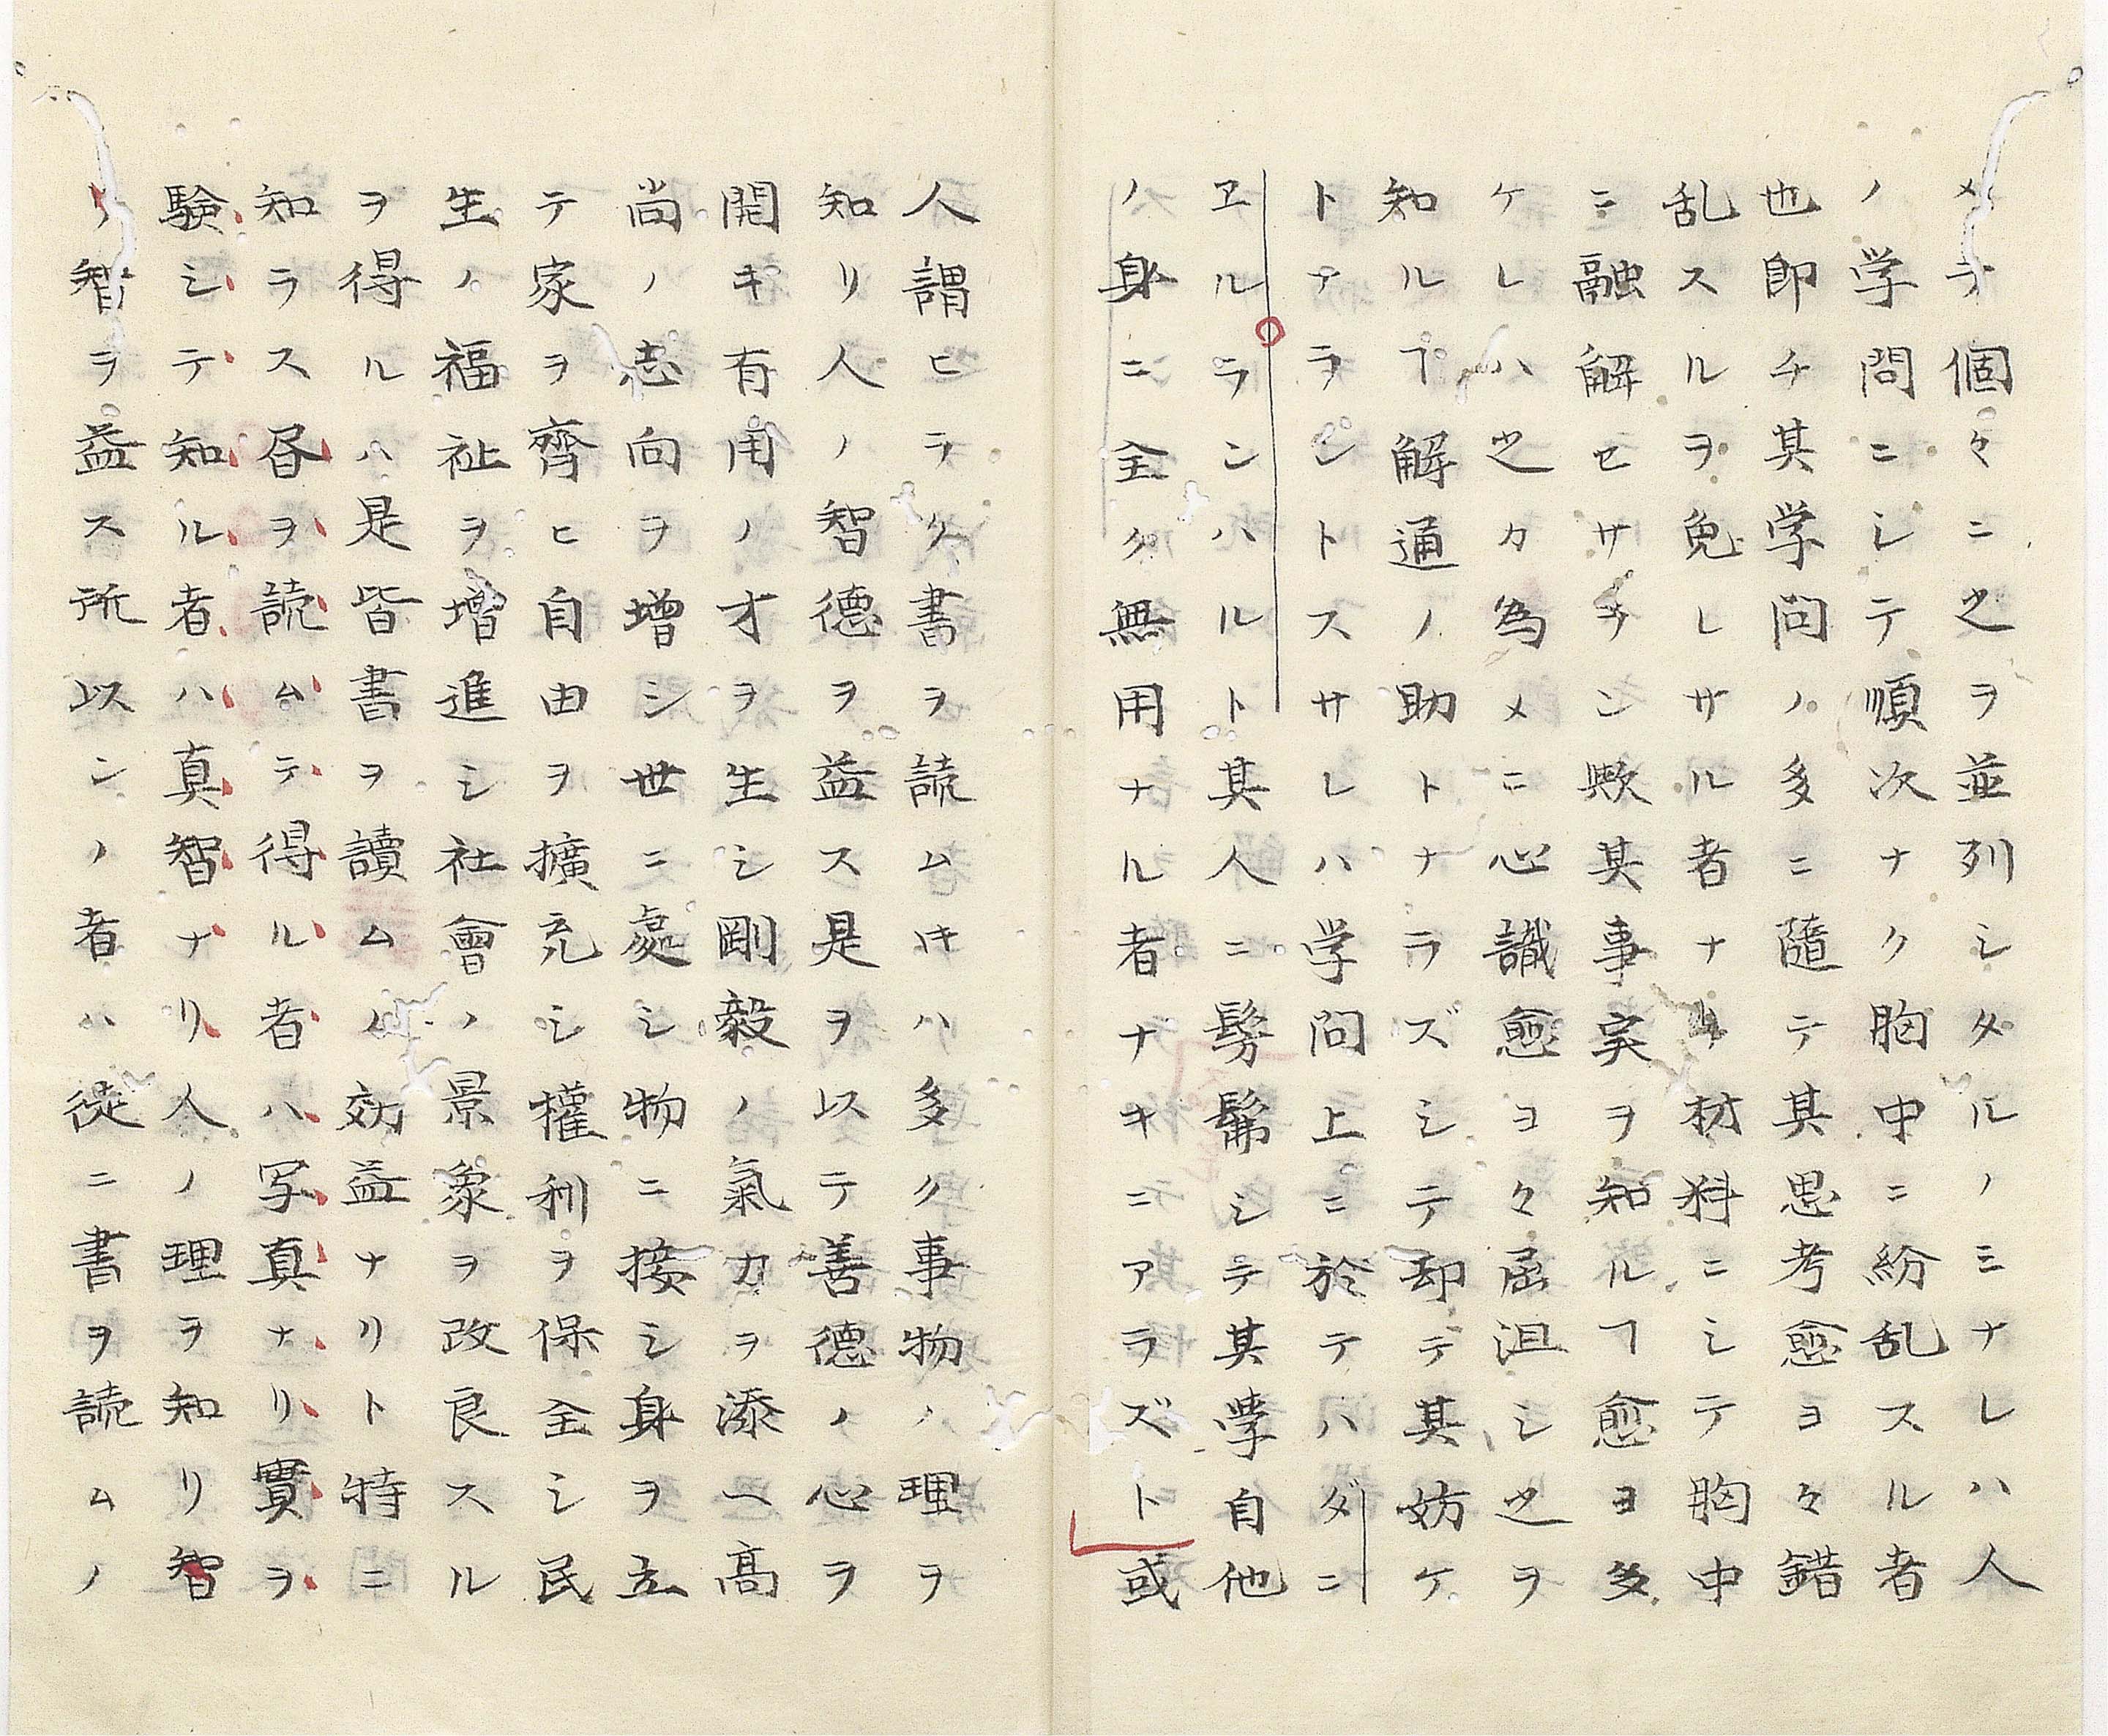 メテ個々ニ之ヲ並列シタルノミナレハ人
ノ学問ニシテ順次ナク胸中ニ紛乱スル者
也即チ其学問ノ多ニ随テ其思考愈ヨ々錯
乱スルヲ免レサル者ナリ材料ニシテ胸中
ニ融解セサラン歟其事実ヲ知ルヿ愈ヨ多
ケレハ之々カ為メニ心識愈ヨ々屈沮シ之ヲ
知ルヿ解通ノ助トナラズシテ却テ其妨ケ
トナラントスサレハ学問上ニ於テハダニ
ヱルランハルト其人ニ髣髴シテ其學自他
ノ身ニ全ク無用ナル者ナキニアラズト或
人謂ヒラク書ヲ読ムキハ多クノ事物ノ理ヲ
知リ人ノ智徳ヲ益ス是ヲ以テ善徳ノ心ヲ
開キ有用ノオヲ生シ剛毅ノ氣力ヲ添ヘ高
尚ノ志向ヲ増シ世ニ處シ物ニ接シ身ヲ立
テ家ヲ齊ヒ自由ヲ擴充シ權利ヲ保全シ民
生ノ福祉ヲ増進シ社會ノ景象ヲ改良スル
ヲ得ルハ是皆書ヲ讀ムノ効益ナリト特ニ
知ラス昏ヲ読ムテ得ル者ハ写真ナリ實ヲ
験シテ知ル者ハ真智ナリ人ノ理ヲ知リ智
リ智ヲ益ス所以ンノ者ハ徒ニ書ヲ読ムノ